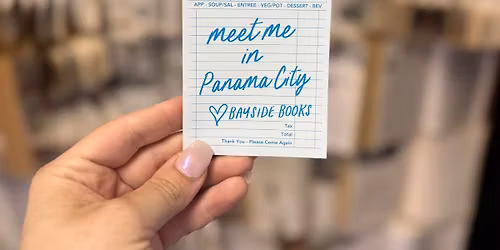 APP - SOUP/SAL - ENTREE - VEG/POT - DESSERT - BEV
meet me
in
Panama City
BAYSIDE BOOKS
Tax
Total
Thank You - Please Come Again